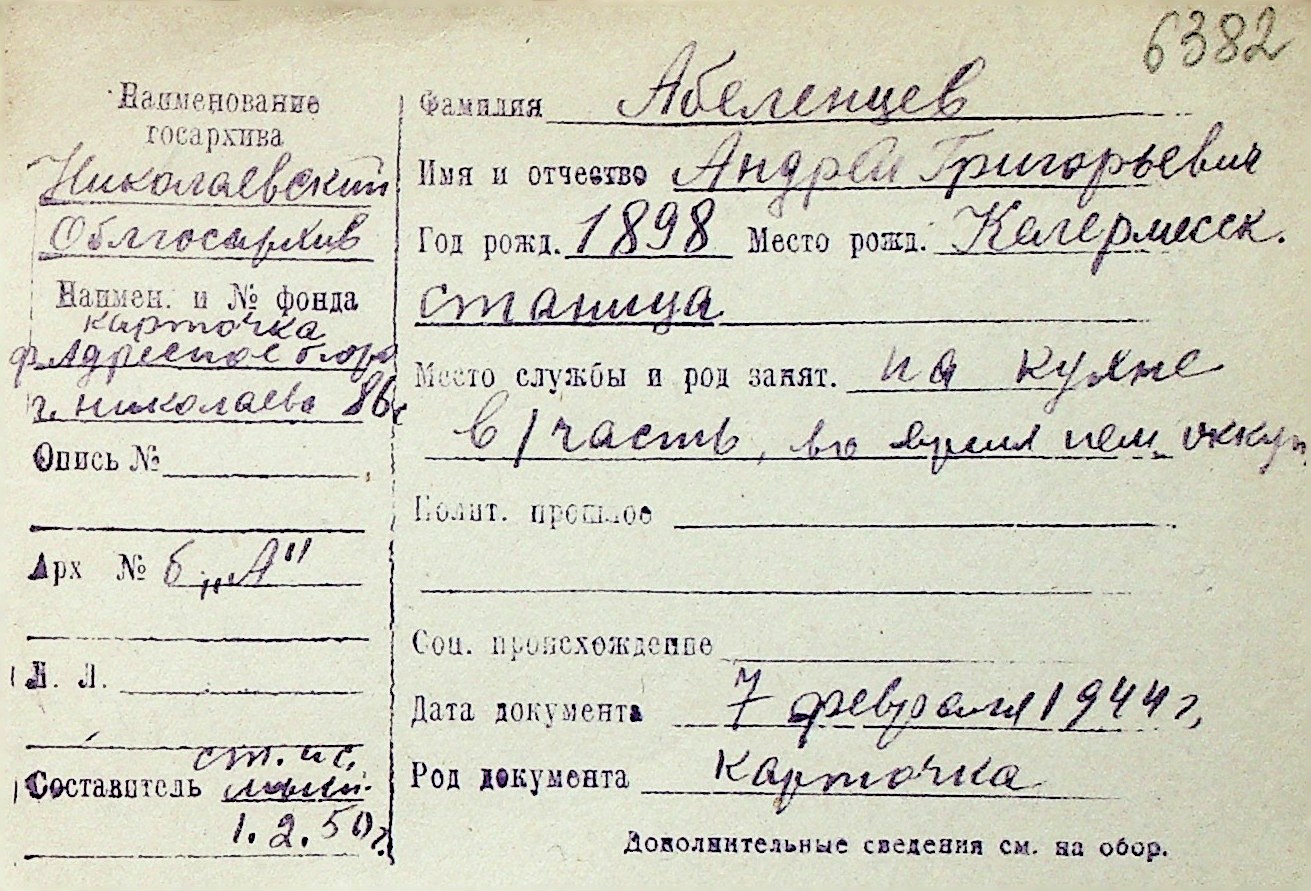 6382
Наименование
госархива
Николаевский
Облгосархив
Наимен. и № фонда
карточка
ф. Адресное бюро
г. Николаева
Опись №
Арх № б. „А"
Л. Л.
Составитель ст. н.с.
1. 2. 50 г.
Фамилия Абеленцев
Имя и отчество Андрей Григорьевич
Год рожд. 1898 Место рожд. Келермесск.
станица
Место службы и род занят. на кухне
в/часть, во время нем. оккуп
Полит. прошлое
Соц. происхождение
Дата документа 7 февраля 1944 г.
Род документа карточка
Дополнительные сведения см. на обор.